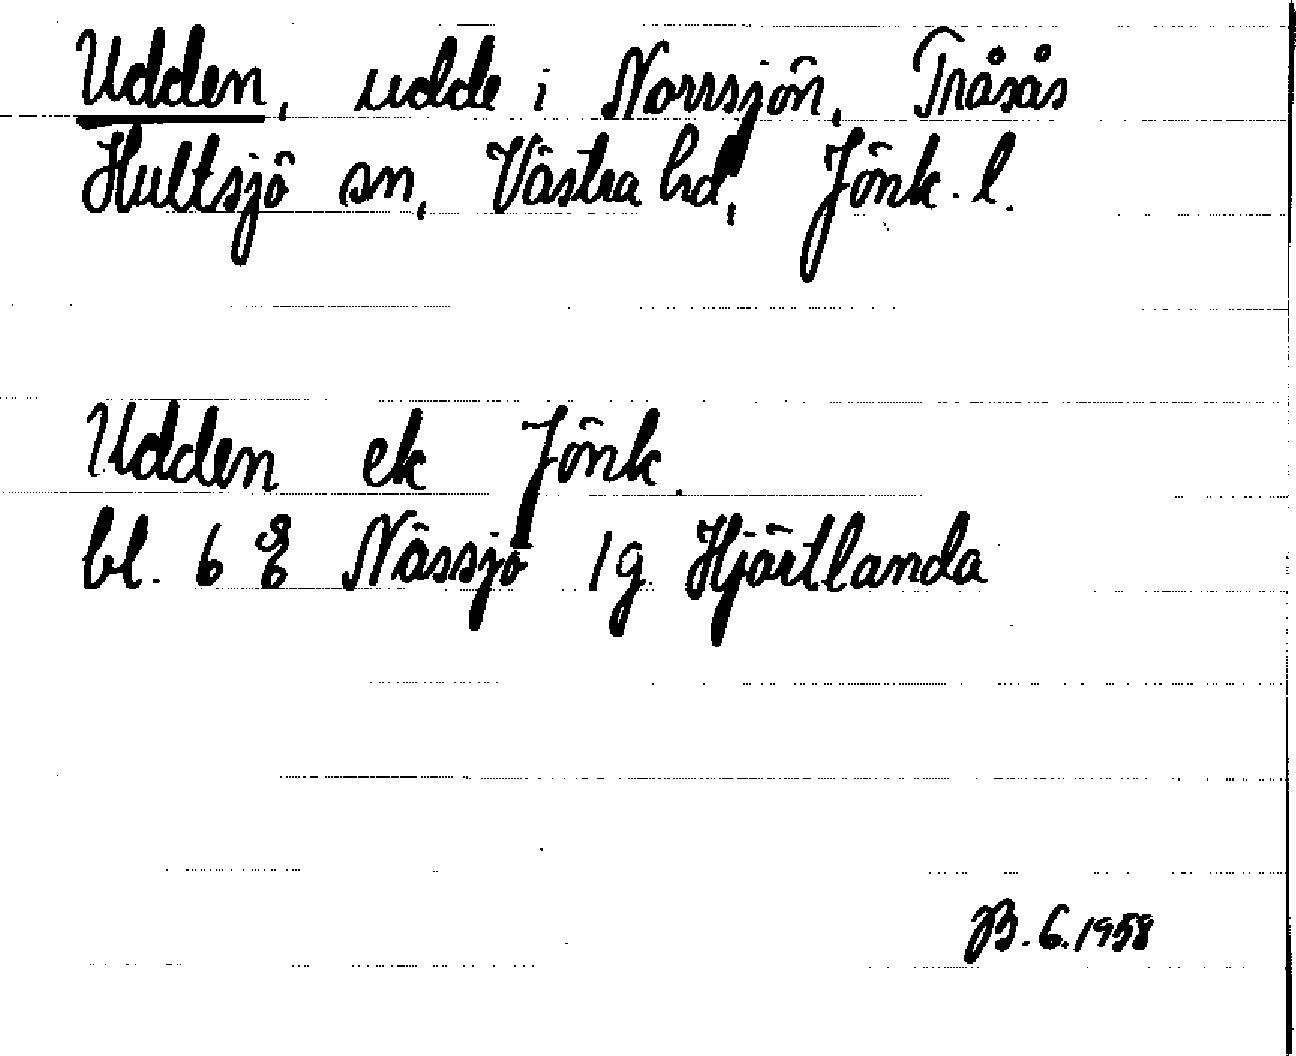 Udden, udde i Norrsjön, Tråsås
Hultsjö sn, Västra hd, Jönk. l.
Udden ek Jönk.
bl. 6 E Nässjö 1g Hjärtlanda
B.G.1958